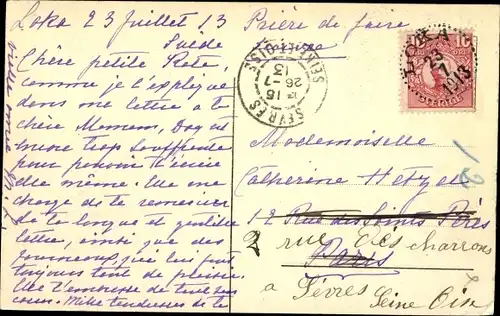 Loka 23 Juillet 13
Suède
Chère petite Kate,
comme je l'explique
dans ma lettre à ta
chère Maman, Dag est
encore trop souffrante
pour pouvoir t'écrire
elle même. Elle me
charge de te remercier
de ta longue et gentille
lettre, ainsi que des
journaux qui lui font
toujours tant de plaisir.
Elle t'embrasse de tout son
cœur. Mille tendresses de ta
Prière de faire
SÈVRES
15
26
13
SEINE-ET-OISE
10
SVERIGE
23
1913
Mademoiselle
Catherine Hetzel
12 Rue des Saints Pères
2 rue des charrons
Paris
à Sèvres
Seine Oise